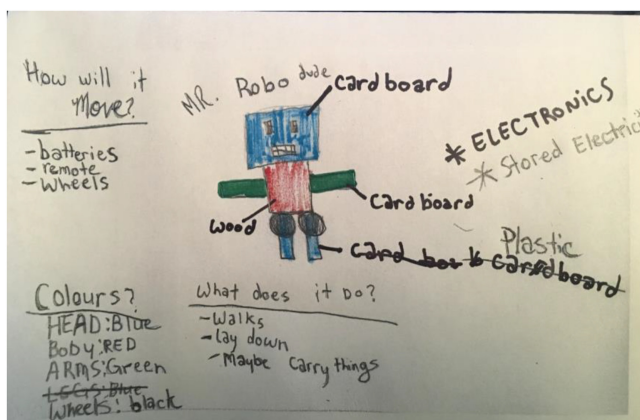 How will it
Move?
-batteries
-remote
-wheels
MR. Robo dude
cardboard
* ELECTRONICS
* Stored Electric
cardboard
wood
Plastic
Colours?
HEAD:Blue
Body:RED
ARMS:Green
LEGS:Blue
Wheels: black
What does it Do?
-Walks
-lay down
-Maybe carry things